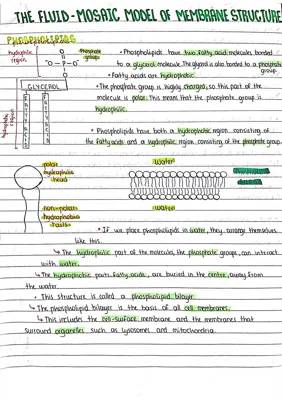 THE FLUID-MOSAIC MODEL OF MEMBRANE STRUCTURE
PHOSPHOLIPIDS
hydrophilic region
O
⁻O-P-O⁻
O
phosphate group
GLYCEROL
FATTY ACID
FATTY ACID
hydrophobic region
• Phospholipids have two fatty acid molecules bonded
to a glycerol molecule. The glycerol is also bonded to a phosphate
group.
• Fatty acids are hydrophobic.
• The phosphate group is highly charged, so this part of the
molecule is polar. This means that the phosphate group is
hydrophilic.
• Phospholipids have both a hydrophobic region consisting of
the fatty acids and a hydrophilic region, consisting of the phosphate group.
polar
hydrophilic
head
non-polar
hydrophobic
tails
water
water
• If we place phospholipids in water, they arrange themselves
like this.
↳ The hydrophilic part of the molecule, the phosphate groups, can interact
with water.
↳ The hydrophobic parts, fatty acids, are buried in the center, away from
the water.
• This structure is called a phospholipid bilayer.
↳ The phospholipid bilayer is the basis of all cell membranes.
↳ This includes the cell-surface membrane and the membranes that
surround organelles such as lysosomes and mitochondria.